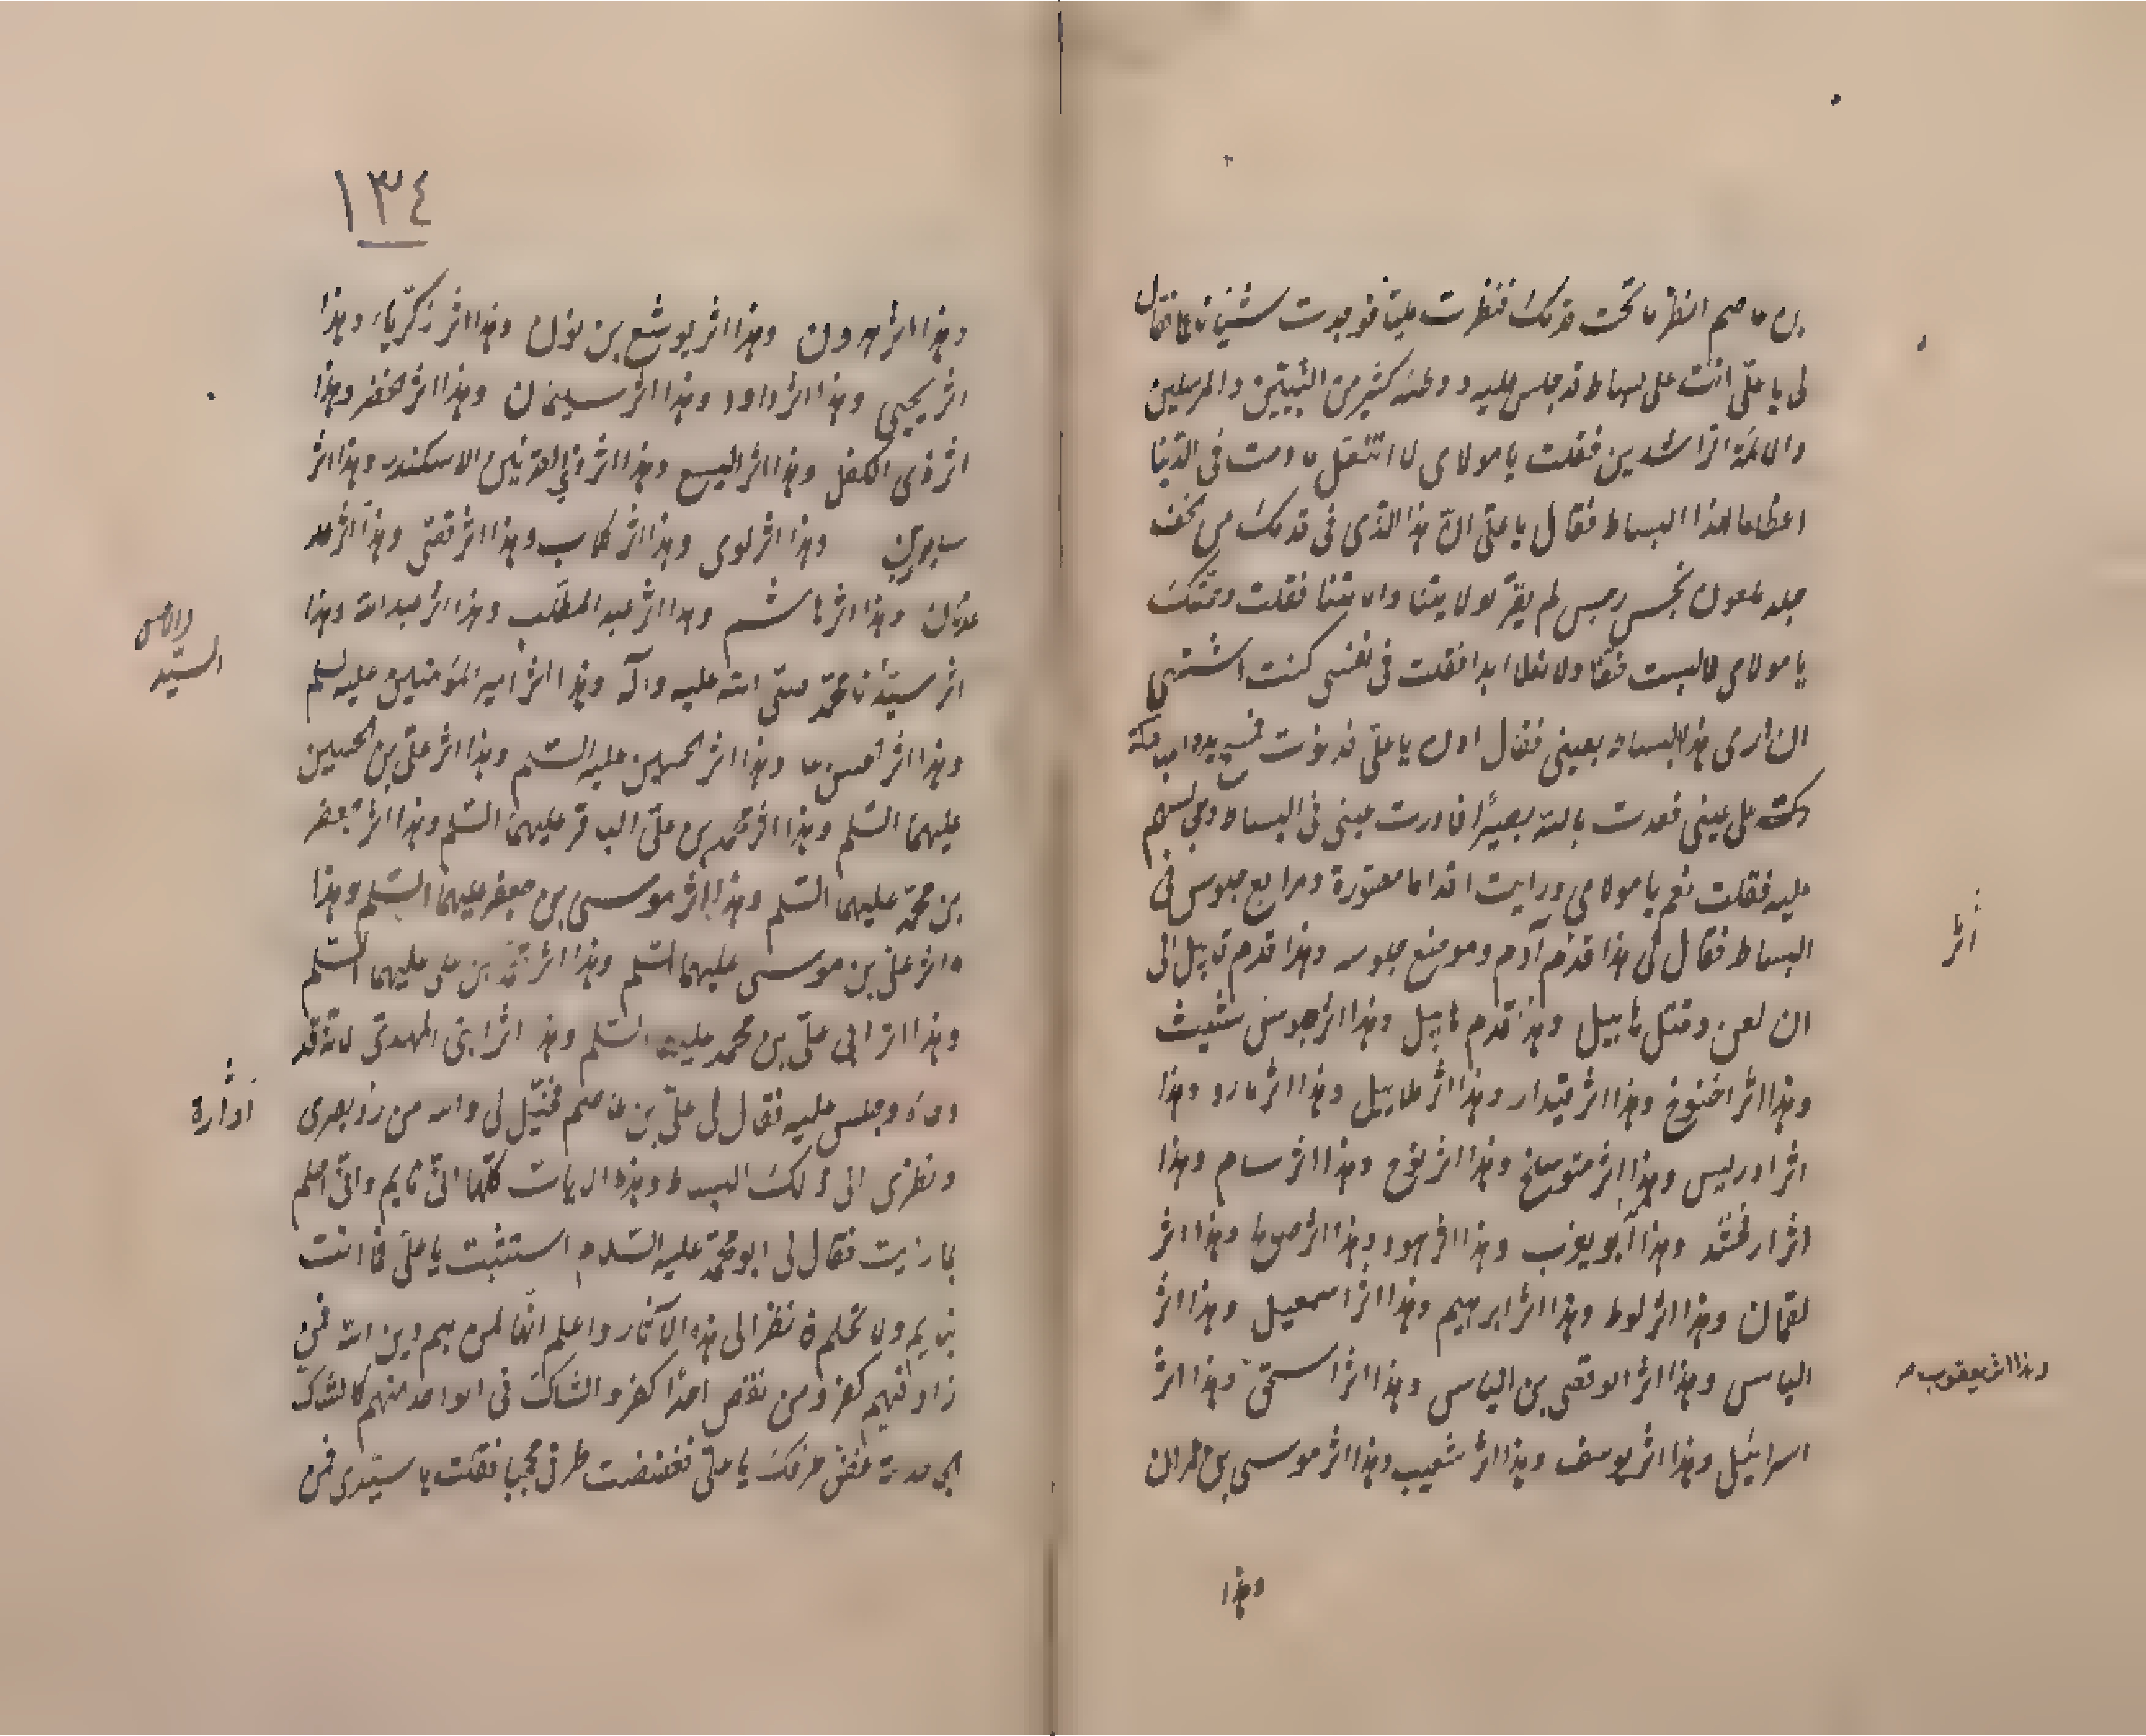 بن عاصم انظر ما تحت قدمك فنظرت مليّا فوجدت شيئا ناعما فقال
لى يا علىّ انت على بساط قد جلس عليه ووطئه كثير من النبيّين والمرسلين
والائمّة الراشدين فقلت يا مولاى لا انتعل ما دمت فى الدّنيا
اعظاما لهذا البساط فقال يا علىّ انّ هذا الّذى فى قدمك من خفّ
جلد ملعون نجس رجس لم يقرّ بولايتنا وامامتنا فقلت وحقّك
يا مولاى لا لبست خفّا ولا نعلا ابدا فقلت فى نفسى كنت اشتهى
ان ارى هذا البساط بعينى فقال ادن يا علىّ فدنوت فمسح يده المباركة
على عينى فعدت بالله بصيرًا فادرت عينى فى البساط ومجلسهم
عليه فقلت نعم يا مولاى ورايت اقداما مصوّرة ومرابع جلوس فى
البساط فقال لى هذا قدم آدم وموضع جلوسه وهذا قدم قابيل الى
ان لعن وقتل هابيل وهذا قدم هابيل وهذا اثر جلوس شيث
وهذا اثر اخنوخ وهذا اثر قيدار وهذا اثر هلابيل وهذا اثر يارد وهذا
اثر ادريس وهذا اثر متوشلخ وهذا اثر نوح وهذا اثر سام وهذا
اثر ارفخشد وهذا ابو يعرب وهذا اثر هود وهذا اثر صالح وهذا اثر
اثر
لقمان وهذا اثر لوط وهذا اثر ابرهيم وهذا اثر اسمعيل وهذا اثر
الياس وهذا اثر ابو قصى بن الياس وهذا اثر اسحق وهذا اثر
وهذا اثر يعقوب
اسرائيل وهذا اثر يوسف وهذا اثر شعيب وهذا اثر موسى بن عمران
وهذا
١٣٤
وهذا اثر هرون وهذا اثر يوشع بن نون وهذا اثر زكريّا وهذا
اثر يحيى وهذا اثر داود وهذا اثر سليمان وهذا اثر الخضر وهذا
اثر ذى الكفل وهذا اثر اليسع وهذا اثر ذى القرنين الاسكندر وهذا اثر
سابور بن وهذا اثر لوى وهذا اثر كلاب وهذا اثر قصّى وهذا اثر
عدنان وهذا اثر هاشم وهذا اثر عبد المطّلب وهذا اثر عبد الله وهذا
السيّد
اثر سيّدنا محمّد صلّى الله عليه وآله وهذا اثر امير المؤمنين عليه السلم
وهذا اثر الحسن وهذا اثر الحسين عليه السّلم وهذا اثر علىّ بن الحسين
عليهما السّلم وهذا اثر محمّد بن علىّ الباقر عليهما السّلم وهذا اثر جعفر
بن محمّد عليهما السّلم وهذا اثر موسى بن جعفر عليهما السّلم وهذا
اثر علىّ بن موسى عليهما السّلم وهذا اثر محمّد بن على عليهما السّلم
وهذا اثر ابى علىّ بن محمد عليهما السّلم وهذا اثر ابنى المهدىّ لانّه قد
وطأه وجلس عليه فقال لى علىّ بن عاصم فخيّل لى والله من ردّ بصرى
ونظرى الى ذلك البساط وهذه الايات كلّها انّى نايم وانّى احلم
بما رايت فقال لى ابو محمّد عليه السّلام استثبت يا علىّ فما انت
بنايم ولا تحلم فانظر الى هذه الآثار واعلم انّها لمن هم دين الله فمن
زاد فيهم كفر ومن نقص احدًا كفر والشاكّ فى الواحد منهم كالشاكّ
الجاحد لله غضّ طرفك يا علىّ فغضضت طرفى محجبا فقلت يا سيّدى فمن